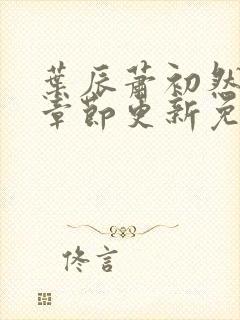 葉辰蕭初然
章節更新免
佟言